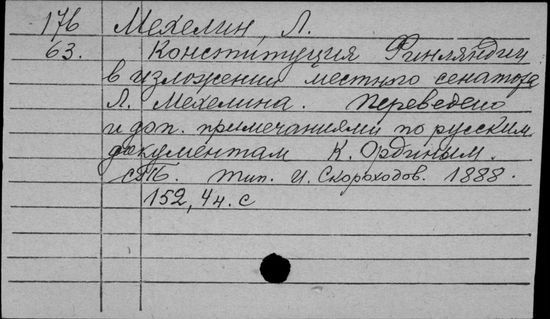 176 Мехелин, Л.
63. Конституция Финляндии
в изложении местного сенатора
Л. Мехелина. Переведено
и доп. примечаниями по русским
документам К. Ордіным.
СПБ. тип. И. Скороходов. 1888.
152, 4 н. с